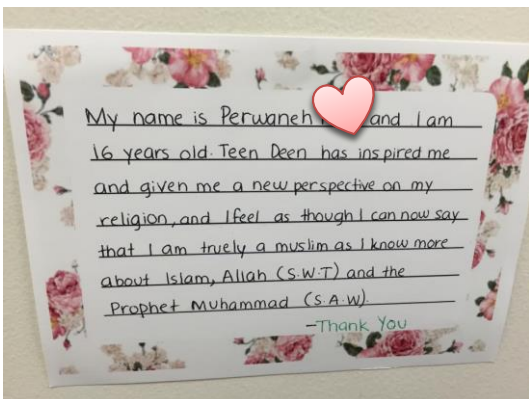 My name is Perwaneh and I am
16 years old. Teen Deen has inspired me
and given me a new perspective on my
religion, and I feel as though I can now say
that I am truely a muslim as I know more
about Islam, Allah (S.W.T) and the
Prophet Muhammad (S.A.W).
-Thank You